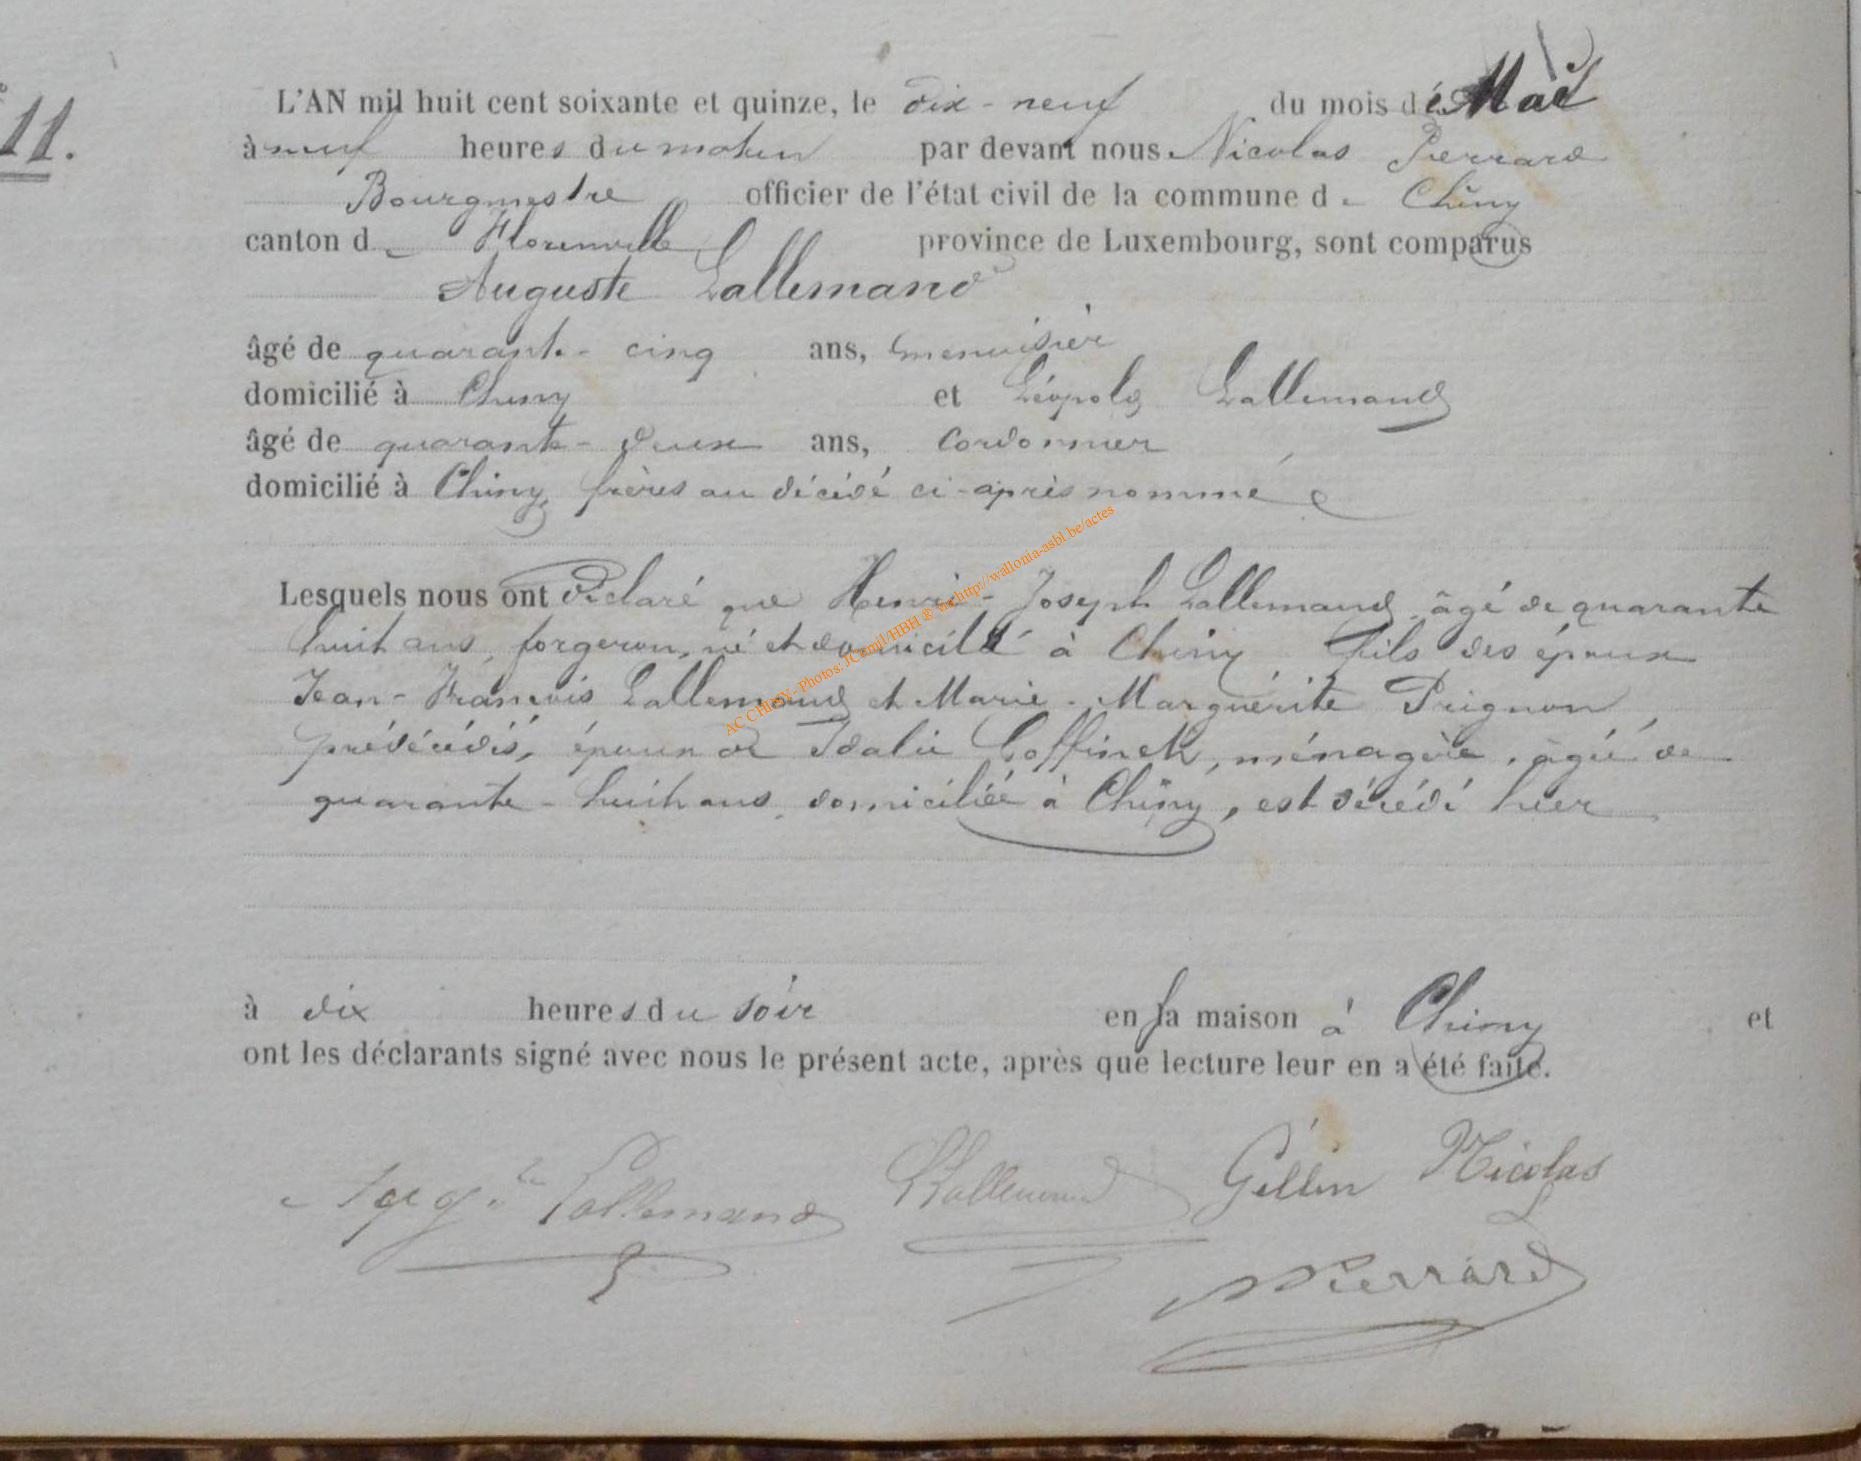 11.
L'AN mil huit cent soixante et quinze, le dix-neuf du mois de Mai
à neuf heures du matin par devant nous Nicolas Pierrard
Bourgmestre officier de l'état civil de la commune de Chiny
canton de Florenville province de Luxembourg, sont comparus
Auguste Lallemand
âgé de quarante-cinq ans, menuisier
domicilié à Chiny et Léopold Lallemand
âgé de quarante-deux ans, Cordonnier
domicilié à Chiny, frères au décédé ci-après nommé
Lesquels nous ont déclaré que Henri-Joseph Lallemand, âgé de quarante
huit ans, forgeron, né et domicilié à Chiny, fils des époux
Jean-François Lallemand et Marie-Marguérite Prignon,
prédécédés, époux de Idalie Goffinet, ménagère, âgée de
quarante-huit ans, domiciliée à Chiny, est décédé hier
à dix heures du soir en sa maison à Chiny et
ont les déclarants signé avec nous le présent acte, après que lecture leur en a été faite.
Lallemand Lallemand Gillin Nicolas
NPierrard
AC CHINY - Photos: JCamil/HBH ® via http://wallonia-asbl.be/actes